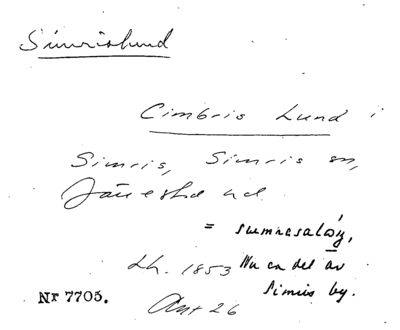 Simrislund
Cimbris Lund i
Simris, Simris sn,
Järrestad hd.
= sumrasaláǹ,
Lh. 1853 Nu en del av
Simris by.
Nr 7705.
Ant 26